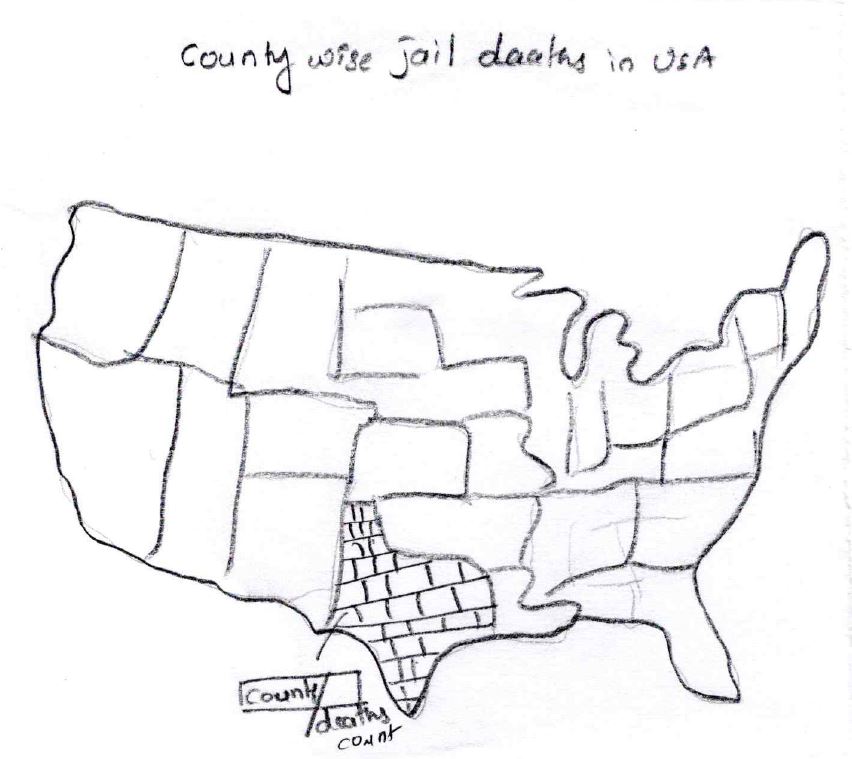 County wise jail daaths in USA
County
deaths
count